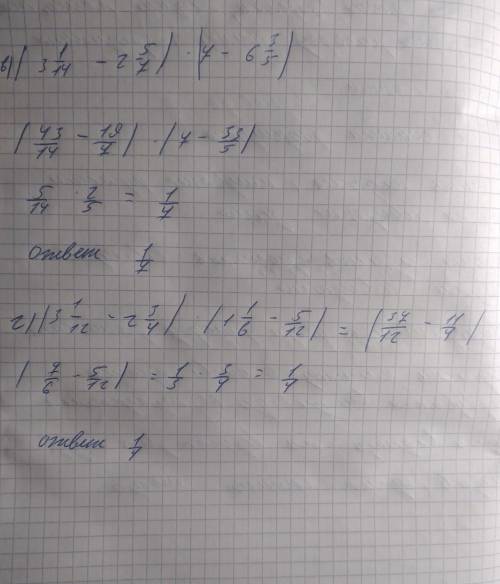 в) (3 1/14 - 2 5/7) · (7 - 6 3/5)
(43/14 - 19/7) · (7 - 33/5)
5/14 · 2/5 = 1/7
ответ 1/7
г) (3 1/12 - 2 3/4) · (1 1/6 - 5/12) = (37/12 - 11/4)
(7/6 - 5/12) = 1/3 · 3/4 = 1/4
ответ 1/4